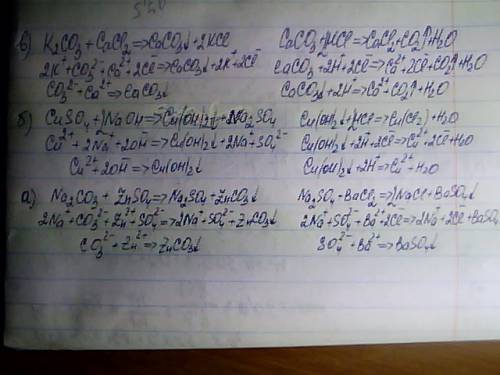 в) K₂CO₃ + CaCl₂ => CaCO₃↓ + 2KCl
2K⁺ + CO₃²⁻ + Ca²⁺ + 2Cl⁻ => CaCO₃↓ + 2K⁺ + 2Cl⁻
CO₃²⁻ + Ca²⁺ => CaCO₃↓
CaCO₃ + 2HCl => CaCl₂ + CO₂↑ + H₂O
CaCO₃ + 2H⁺ + 2Cl⁻ => Ca²⁺ + 2Cl⁻ + CO₂↑ + H₂O
CaCO₃↓ + 2H⁺ => Ca²⁺ + CO₂↑ + H₂O
б) CuSO₄ + 2NaOH => Cu(OH)₂↓ + Na₂SO₄
Cu²⁺ + 2Na⁺ + 2OH⁻ => Cu(OH)₂↓ + 2Na⁺ + SO₄²⁻
Cu²⁺ + 2OH⁻ => Cu(OH)₂↓
Cu(OH)₂↓ + 2HCl => Cu(Cl₂) + H₂O
Cu(OH)₂↓ + 2H⁺ + 2Cl⁻ => Cu²⁺ + 2Cl⁻ + H₂O
Cu(OH)₂↓ + 2H⁺ => Cu²⁺ + H₂O
а) Na₂CO₃ + ZnSO₄ => Na₂SO₄ + ZnCO₃↓
2Na⁺ + CO₃²⁻ + Zn²⁺ + SO₄²⁻ => 2Na⁺ + SO₄²⁻ + ZnCO₃↓
CO₃²⁻ + Zn²⁺ => ZnCO₃↓
Na₂SO₄ + BaCl₂ => 2NaCl + BaSO₄↓
2Na⁺ + SO₄²⁻ + Ba²⁺ + 2Cl⁻ => 2Na⁺ + 2Cl⁻ + BaSO₄
SO₄²⁻ + Ba²⁺ => BaSO₄↓